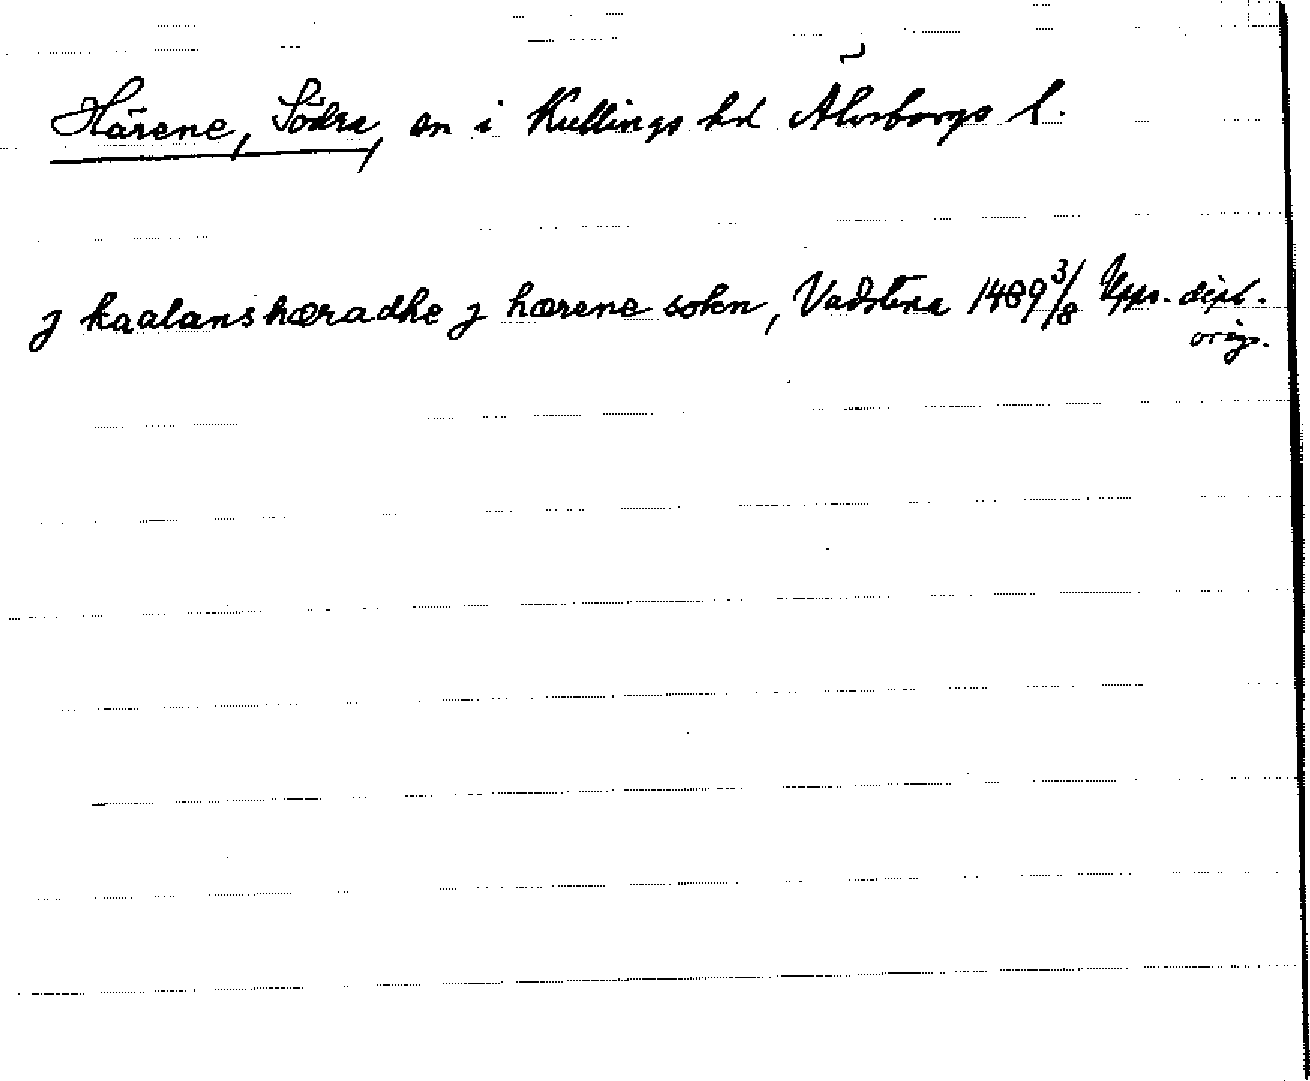 Härene, Södra, sn i Kullings hd Älvsborgs l.
j kaalans hæradhe j hærene sokn, Vadstena 1489 3/8 Upps. dipl.
orig.